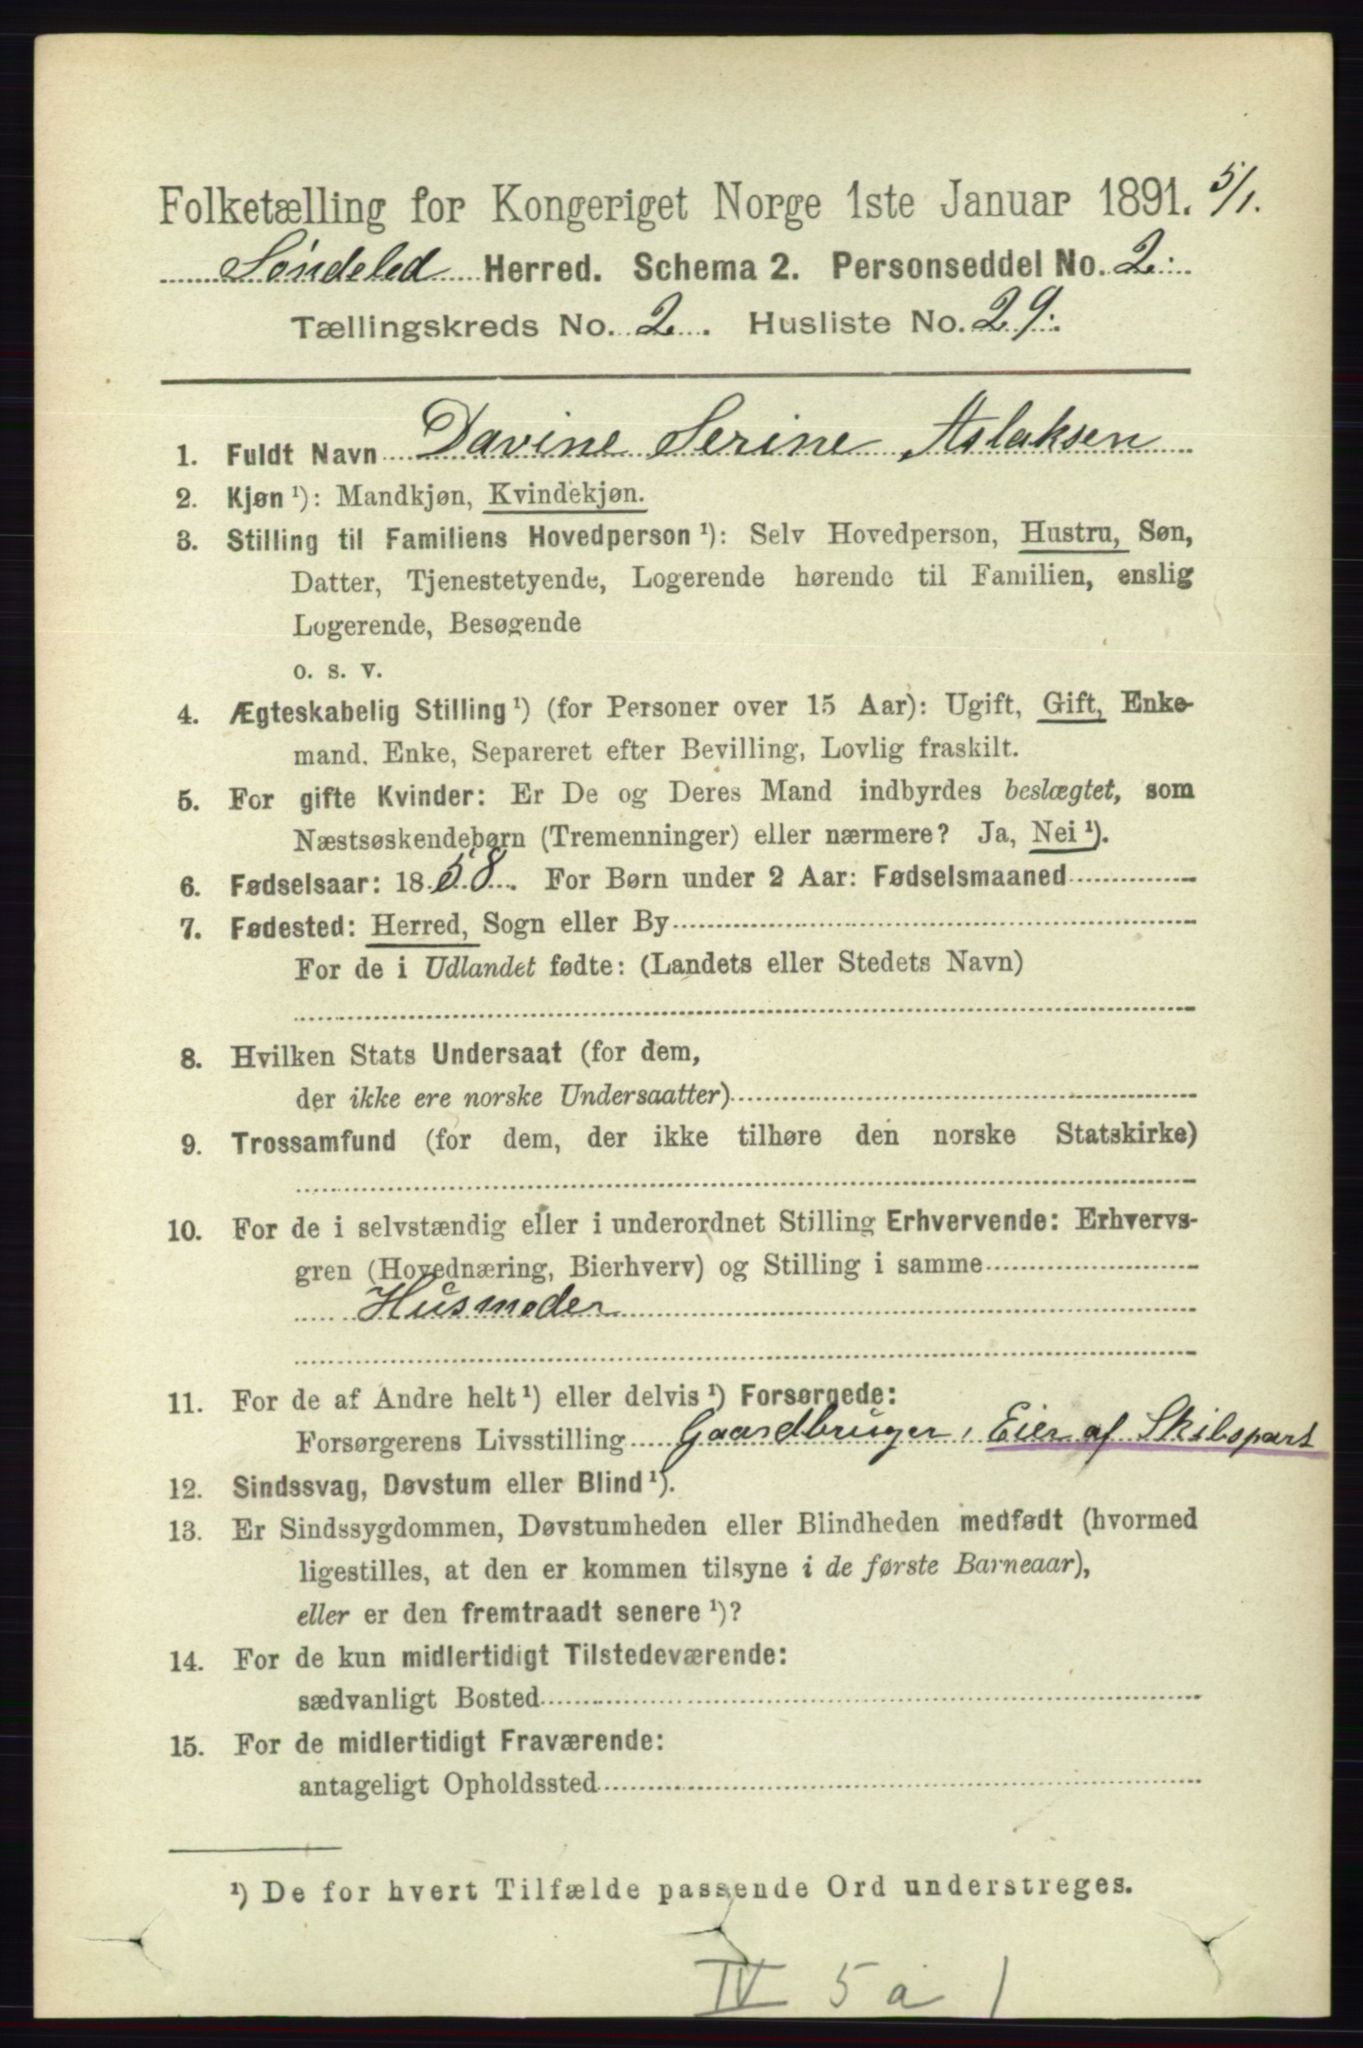 Folketælling for Kongeriget Norge 1ste Januar 1891. 5/1.
Søndeled Herred. Schema 2. Personseddel No. 2.
Tællingskreds No. 2. Husliste No. 29.
1. Fuldt Navn Davine Serine Aslaksen
2. Kjøn ¹): Mandkjøn, Kvindekjøn.
3. Stilling til Familiens Hovedperson ¹): Selv Hovedperson, Hustru, Søn,
Datter, Tjenestetyende, Logerende hørende til Familien, enslig
Logerende, Besøgende
o. s. v.
4. Ægteskabelig Stilling ¹) (for Personer over 15 Aar): Ugift, Gift, Enke-
mand, Enke, Separeret efter Bevilling, Lovlig fraskilt.
5. For gifte Kvinder: Er De og Deres Mand indbyrdes beslægtet, som
Næstsøskendebørn (Tremenninger) eller nærmere? Ja, Nei ¹).
6. Fødselsaar: 1858. For Børn under 2 Aar: Fødselsmaaned
7. Fødested: Herred, Sogn eller By
For de i Udlandet fødte: (Landets eller Stedets Navn)
8. Hvilken Stats Undersaat (for dem,
der ikke ere norske Undersaatter)
9. Trossamfund (for dem, der ikke tilhøre den norske Statskirke)
10. For de i selvstændig eller i underordnet Stilling Erhvervende: Erhvervs-
gren (Hovednæring, Bierhverv) og Stilling i samme
Husmoder
11. For de af Andre helt ¹) eller delvis ¹) Forsørgede:
Forsørgerens Livsstilling Gaardbruger, Eier af Skibspart
12. Sindssvag, Døvstum eller Blind ¹).
13. Er Sindssygdommen, Døvstumheden eller Blindheden medfødt (hvormed
ligestilles, at den er kommen tilsyne i de første Barneaar),
eller er den fremtraadt senere ¹)?
14. For de kun midlertidigt Tilstedeværende:
sædvanligt Bosted
15. For de midlertidigt Fraværende:
antageligt Opholdssted
¹) De for hvert Tilfælde passende Ord understreges.
IV 5 a 1